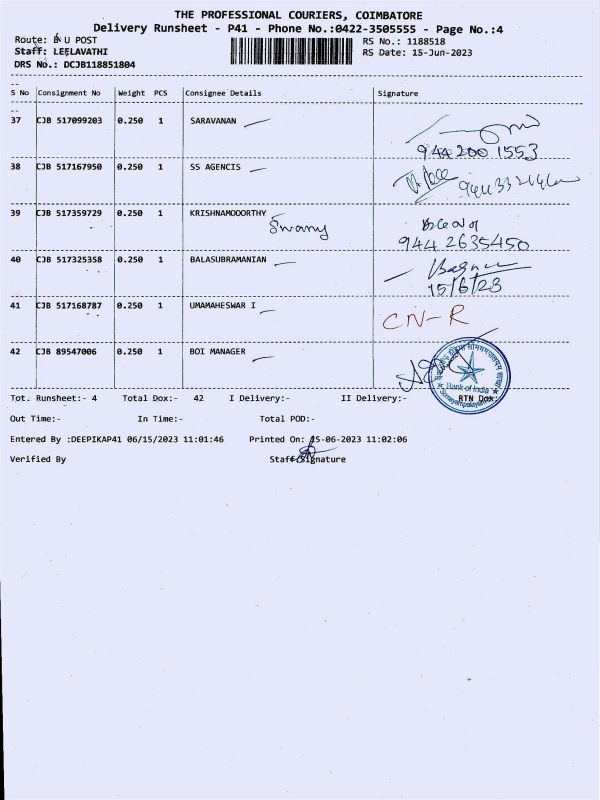 THE PROFESSIONAL COURIERS, COIMBATORE
Delivery Runsheet - P41 - Phone No.:0422-3505555 - Page No.:4
Route: B U POST
RS No.: 1188518
Staff: LEELAVATHI
RS Date: 15-Jun-2023
DRS No.: DCJB118851804
S No Consignment No Weight PCS Consignee Details Signature
37 CJB 517099203 0.250 1 SARAVANAN
944 200 1553
38 CJB 517167950 0.250 1 SS AGENCIS
39 CJB 517359729 0.250 1 KRISHNAMOOORTHY
Swamy
944 2635450
40 CJB 517325358 0.250 1 BALASUBRAMANIAN
15/6/23
41 CJB 517168787 0.250 1 UMAMAHESWAR I
CN-R
42 CJB 89547006 0.250 1 BOI MANAGER
Bank of India
Tot. Runsheet:- 4 Total Dox:- 42 I Delivery:- II Delivery:- RTN Dox:
Out Time:- In Time:- Total POD:-
Entered By :DEEPIKAP41 06/15/2023 11:01:46 Printed On: 15-06-2023 11:02:06
Verified By Staff Signature